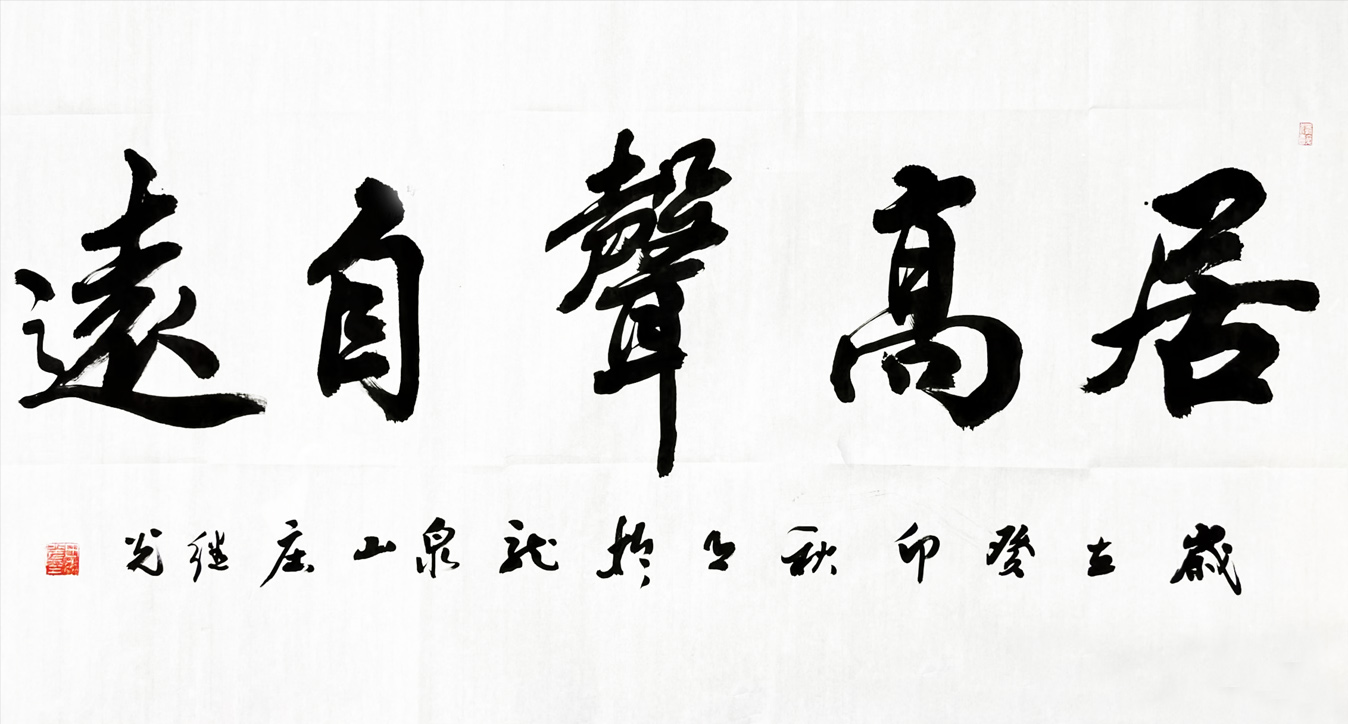 居高聲自遠
歲在癸卯秋月於龍泉山庄继光